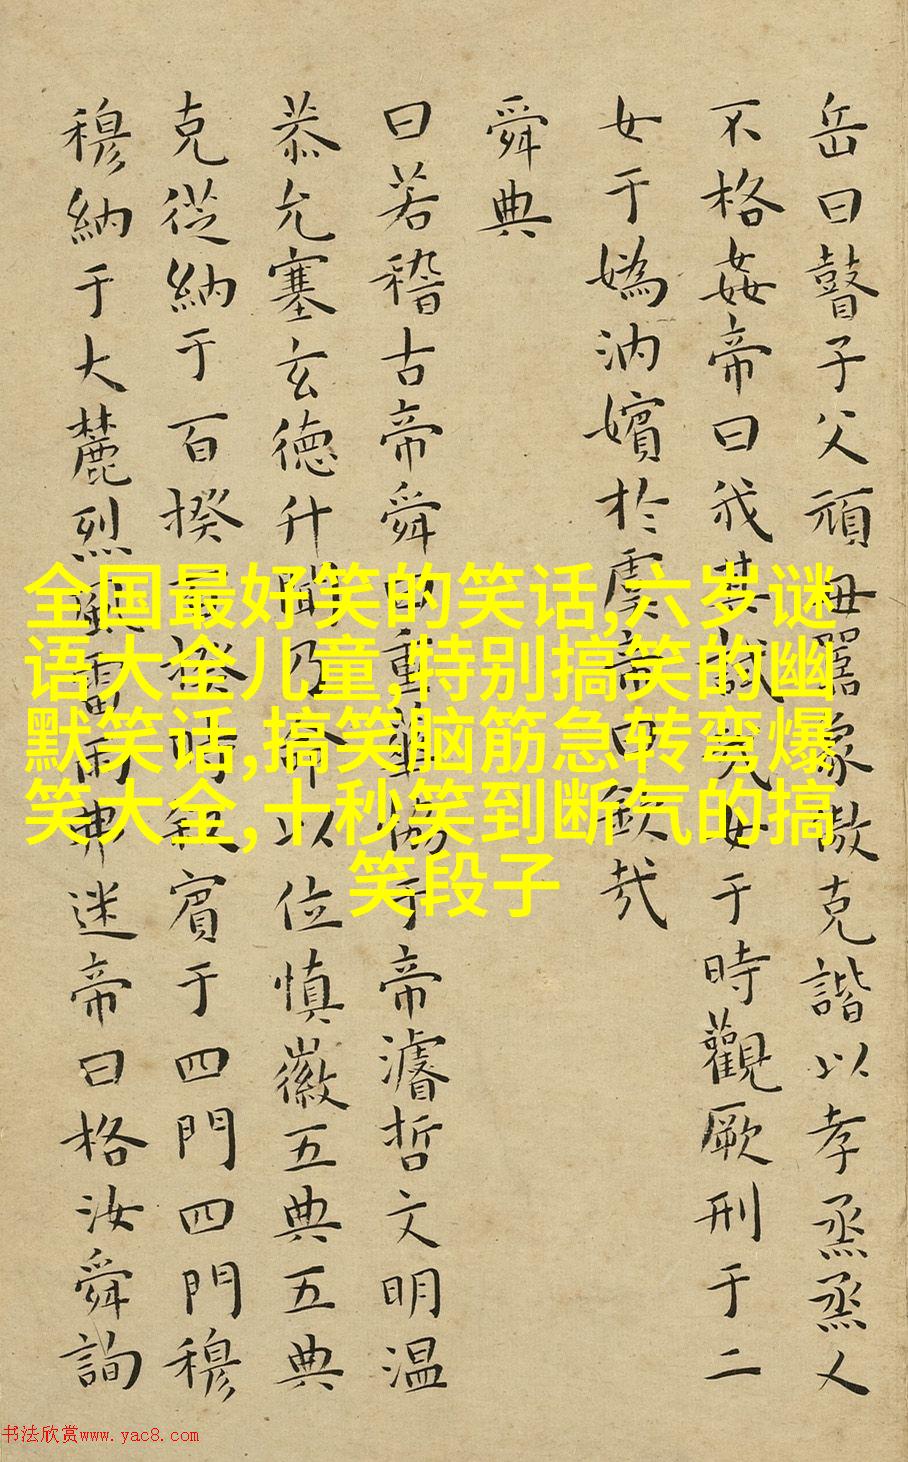 岳曰瞽子父頑母嚚象傲克諧以孝烝烝乂
不格姦帝曰我其試哉女于時觀厥刑于二
女于媯汭嬪於虞帝曰欽哉
舜典
曰若稽古帝舜曰重華協于帝濬哲文明温
恭允塞玄徳升聞乃命以位慎徽五典五典
克從納于百揆百揆時敘賓于四門四門穆
穆納于大麓烈風雷雨弗迷帝曰格汝舜詢
全国最好笑的笑话,六岁谜
语大全儿童,特别搞笑的幽
默笑话,搞笑脑筋急转弯爆
笑大全,十秒笑到断气的搞
笑段子
书法欣赏www.yac8.com